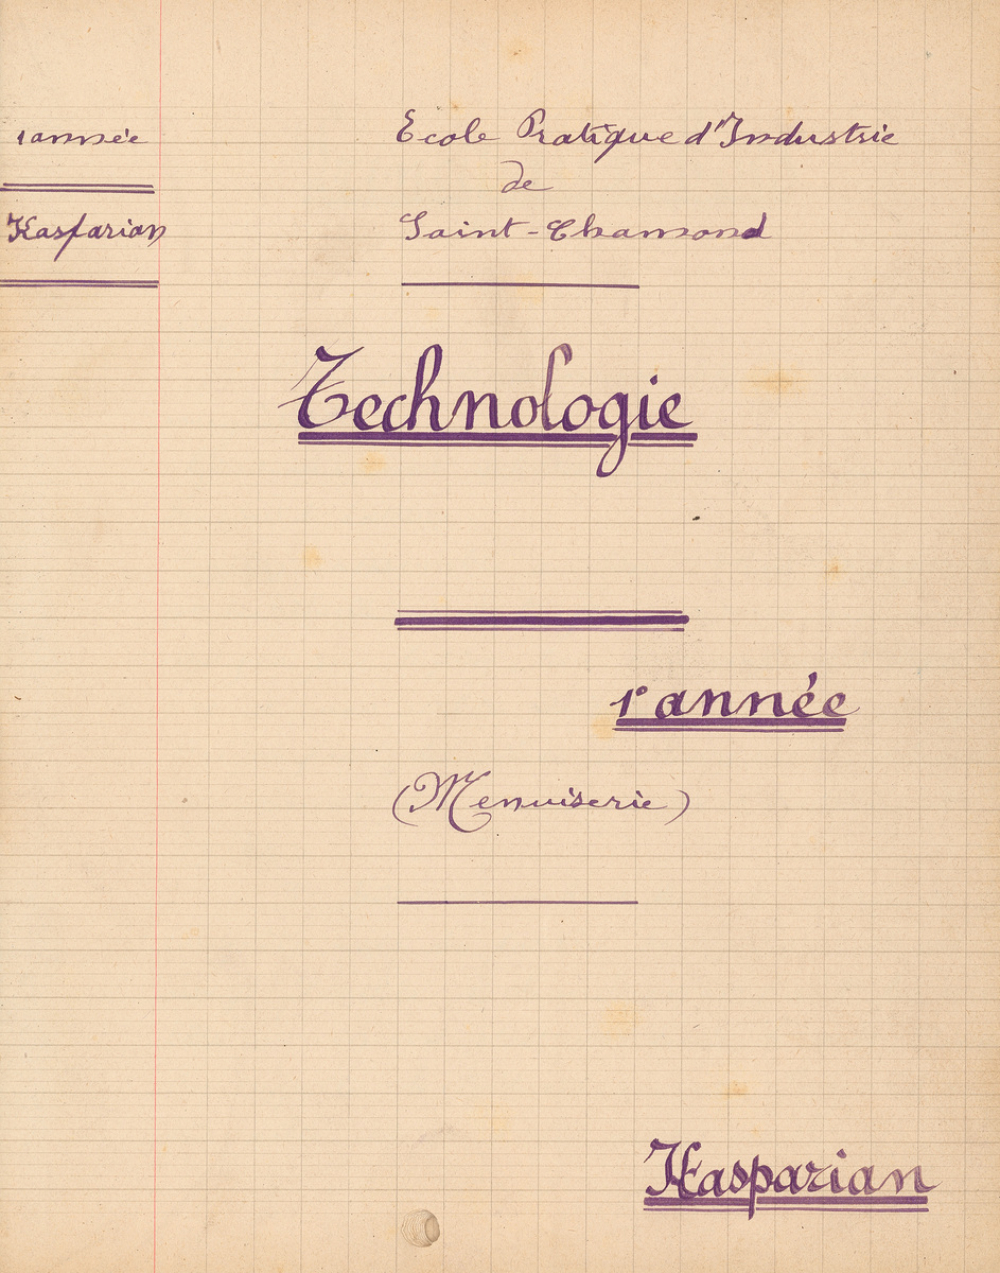 1 année
Kasparian
Ecole Pratique d'Industrie
de
Saint-Chamond
Technologie
1e année
(Menuiserie)
Kasparian